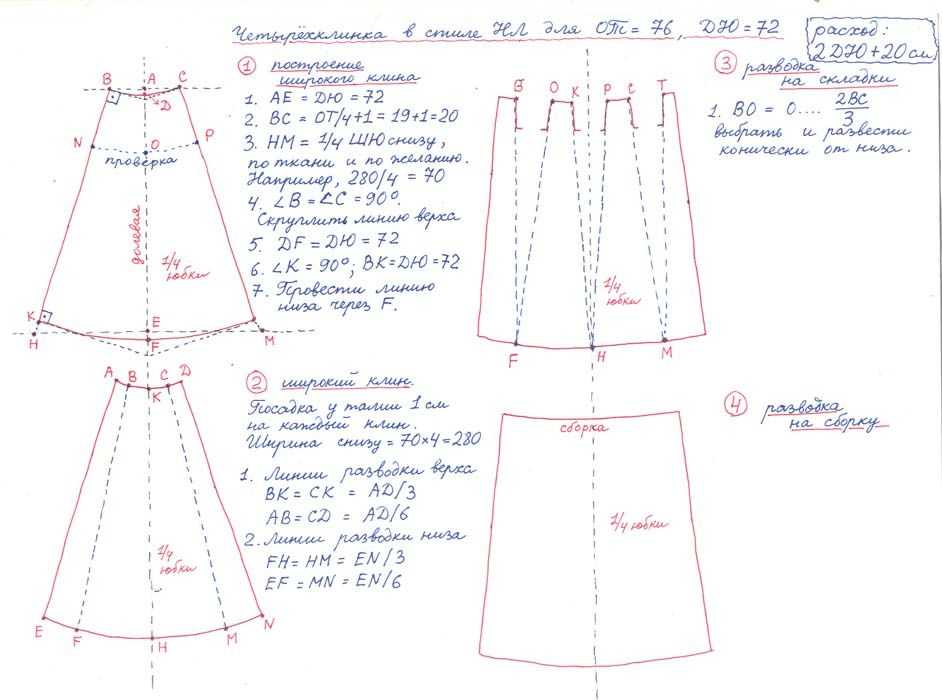 Четырёхклинка в стиле НЛ для ОТ = 76, ДЮ = 72
расход:
2ДЮ + 20 см
1 построение
широкого клина
1. АЕ = ДЮ = 72
2. ВС = ОТ/4 + 1 = 19 + 1 = 20
3. НМ = 1/4 ШЮ снизу,
по ткани и по желанию.
Например, 280/4 = 70
4. ∠В = ∠С = 90°.
Скруглить линию верха
5. DF = ДЮ = 72
6. ∠К = 90°; ВК = ДЮ = 72
7. Провести линию
низа через F.
B A C
D
N O P
проверка
долевая
1/4
юбки
K E
H F M
2 широкий клин.
Посадка у талии 1 см
на каждый клин.
Ширина снизу = 70×4 = 280
1. Линии разводки верха
ВК = СК = AD/3
АВ = CD = AD/6
2. Линии разводки низа
FH = HM = EN/3
EF = MN = EN/6
A B C D
K
1/4
юбки
E F H M N
3 разводка
на складки
1. ВО = О.... 2ВС/3
выбрать и развести
конически от низа.
В О К Р С Т
1/4
юбки
F H M
4 разводка
на сборку
сборка
1/4 юбки